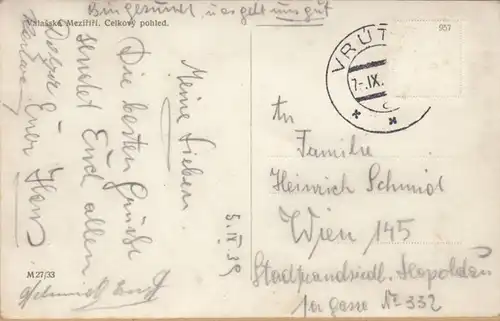 Bin gesund, uns geht uns gut
Valašské Meziříčí. Celkový pohled.
5.IX.39
Meine Lieben
Die besten Grüße
sendet Euch allen
Euer Hans
M 27/33
VRÚT
7.-.IX.
957
An
Familie
Heinrich Schmid
Wien 145
Stadtrandsiedl. Leopoldau
er Gasse No 332